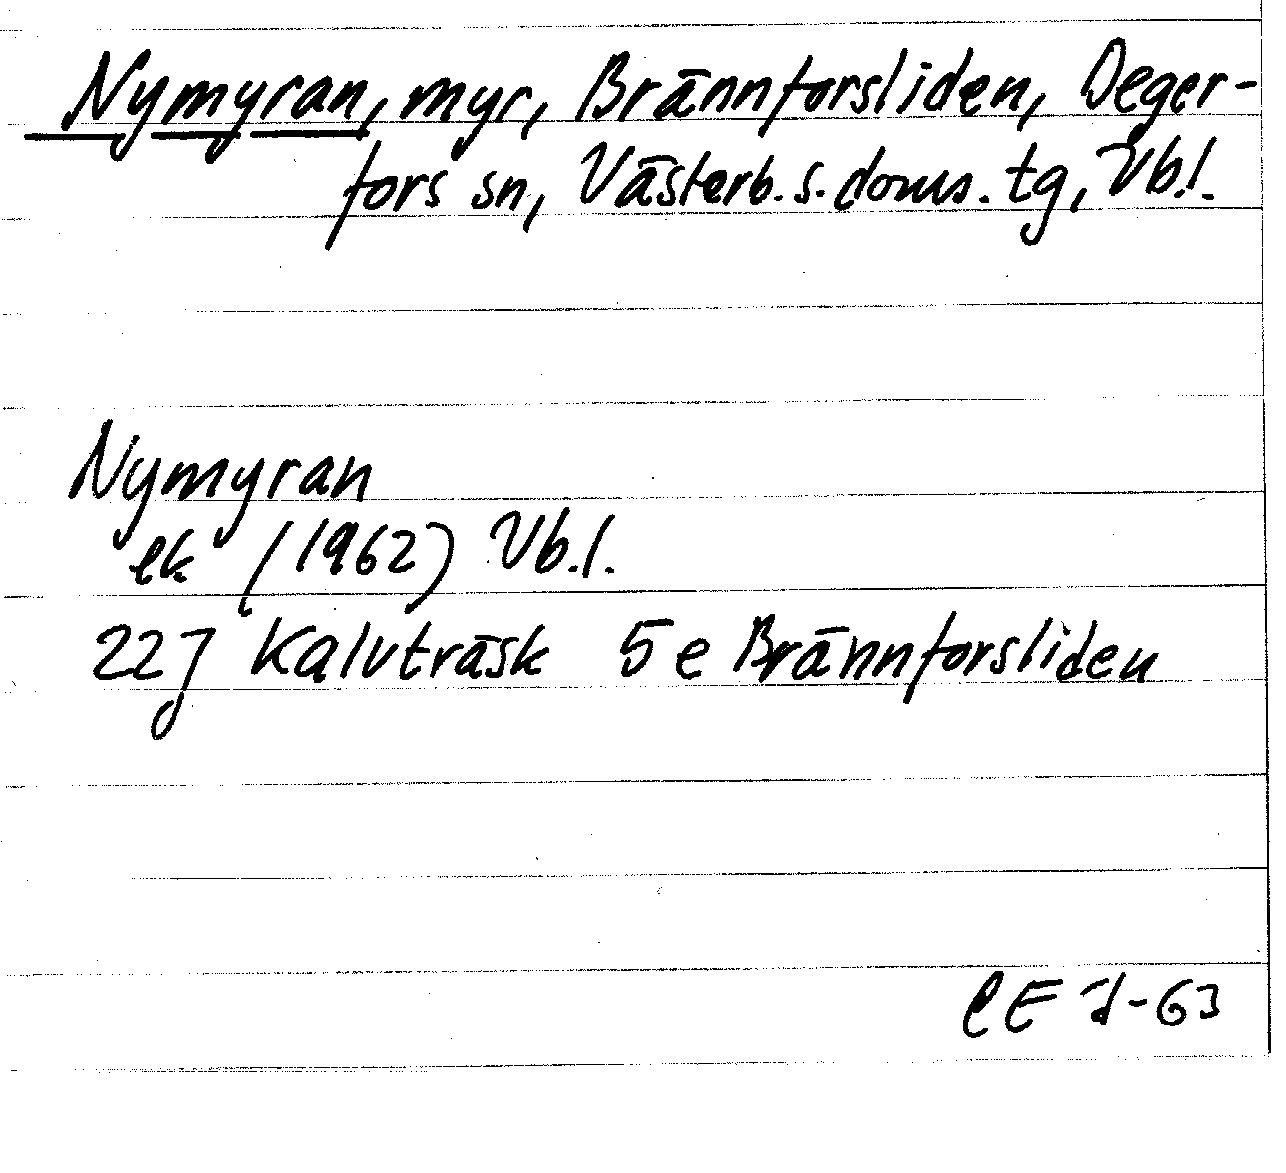 Nymyran, myr, Brännforsliden, Deger-
fors sn, Västerb. s. doms. tg, Vb.l.
Nymyran
ek (1962) Vb.l.
22J Kalvträsk 5 e Brännforsliden
CE -63